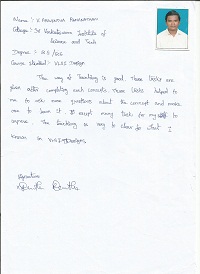 Name :- V.
College :- Sri Venkateswara Institute of
Science and Tech
Degree :- B.E / ECE
Course Studied :- VLSI Design
The way of Teaching is good. These tasks are
given after completing each concepts. These tasks helped to
me to ask more questions about the concept and make
me to learn it. except many tech for my to
The teaching is very to clear for what I
known in VLSI Designs
Signature